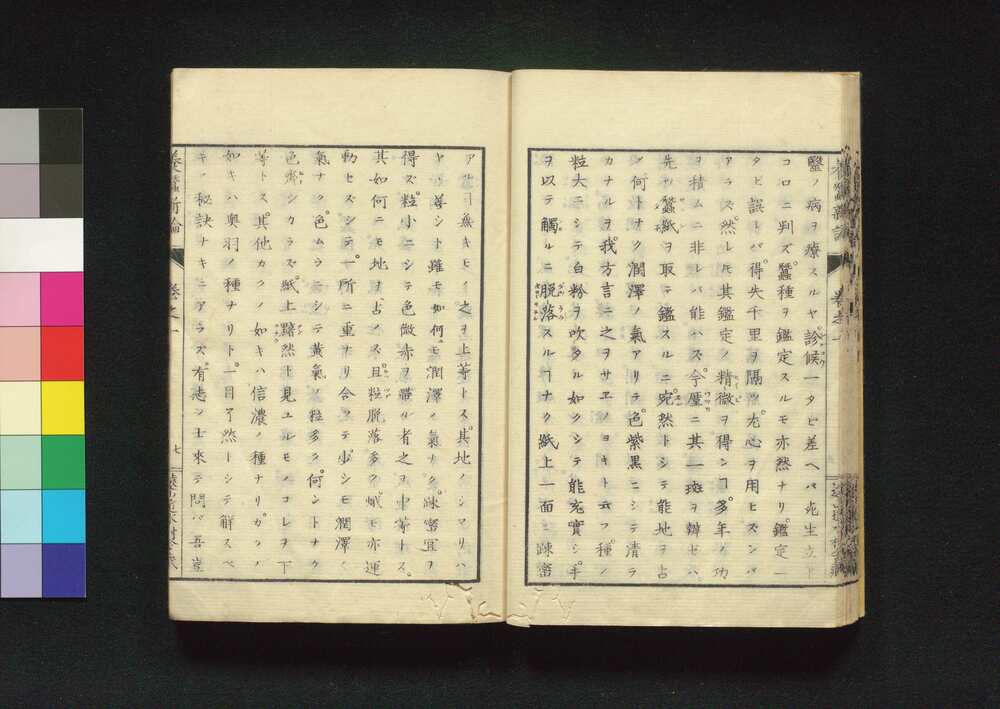 醫ノ病ヲ療スルヤ診候一タビ差ヘバ死生立ト
コロニ判ズ蠶種ヲ鑑定スルモ亦然ナリ鑑定一
タビ誤トバ得失千里ヲ隔ツ尤心ヲ用ヒズンバ
アラズ然レ𪜈其鑑定ノ精微ヲ得ンヿ多年ノ功
ヲ積ムニ非レバ能ハズ今厪ニ其一斑ヲ辨ゼバ
先ヅ蠶紙ヲ取テ鑑スルニ宛然トシテ能地ヲ占
メ何トナク潤澤ノ氣アリテ色紫黒ニシテ清ラ
カナルヲ我方言ニ之ヲサヱノヨキト云フ種ノ
粒大ニシテ白粉ヲ吹タル如クシテ能充實シ手
ヲ以テ觸ルニ脱落スルヿナク紙上一面ニ疎密
養蠶新論 卷之一
ナク 無キモノ之ヲ上等トス其地ノシマリハ
ヤヽ善シト雖モ如何ニモ潤澤ノ氣ナク疎密宜ヲ
得ズ粒小ニシテ色微赤ヲ帶ル者之ヲ中等トス
其如何ニモ地ヲ占メズ且粒脱落多ク蛾モ亦運
動セズシテ一所ニ重ナリ合フテ少シモ潤澤ノ
氣ナク色ムラニシテ黄氣ノ粒多ク何ントナク
色齊シカラズ紙上黯然ト見ユルモノコレヲ下
等トス其他カクノ如キハ信濃ノ種ナリカクノ
如キハ奥羽ノ種ナリト一目了然トシテ解スベ
キノ秘訣ナキニアラズ有志ノ士來テ問バ吾豈
養蠶新論 卷之一 七